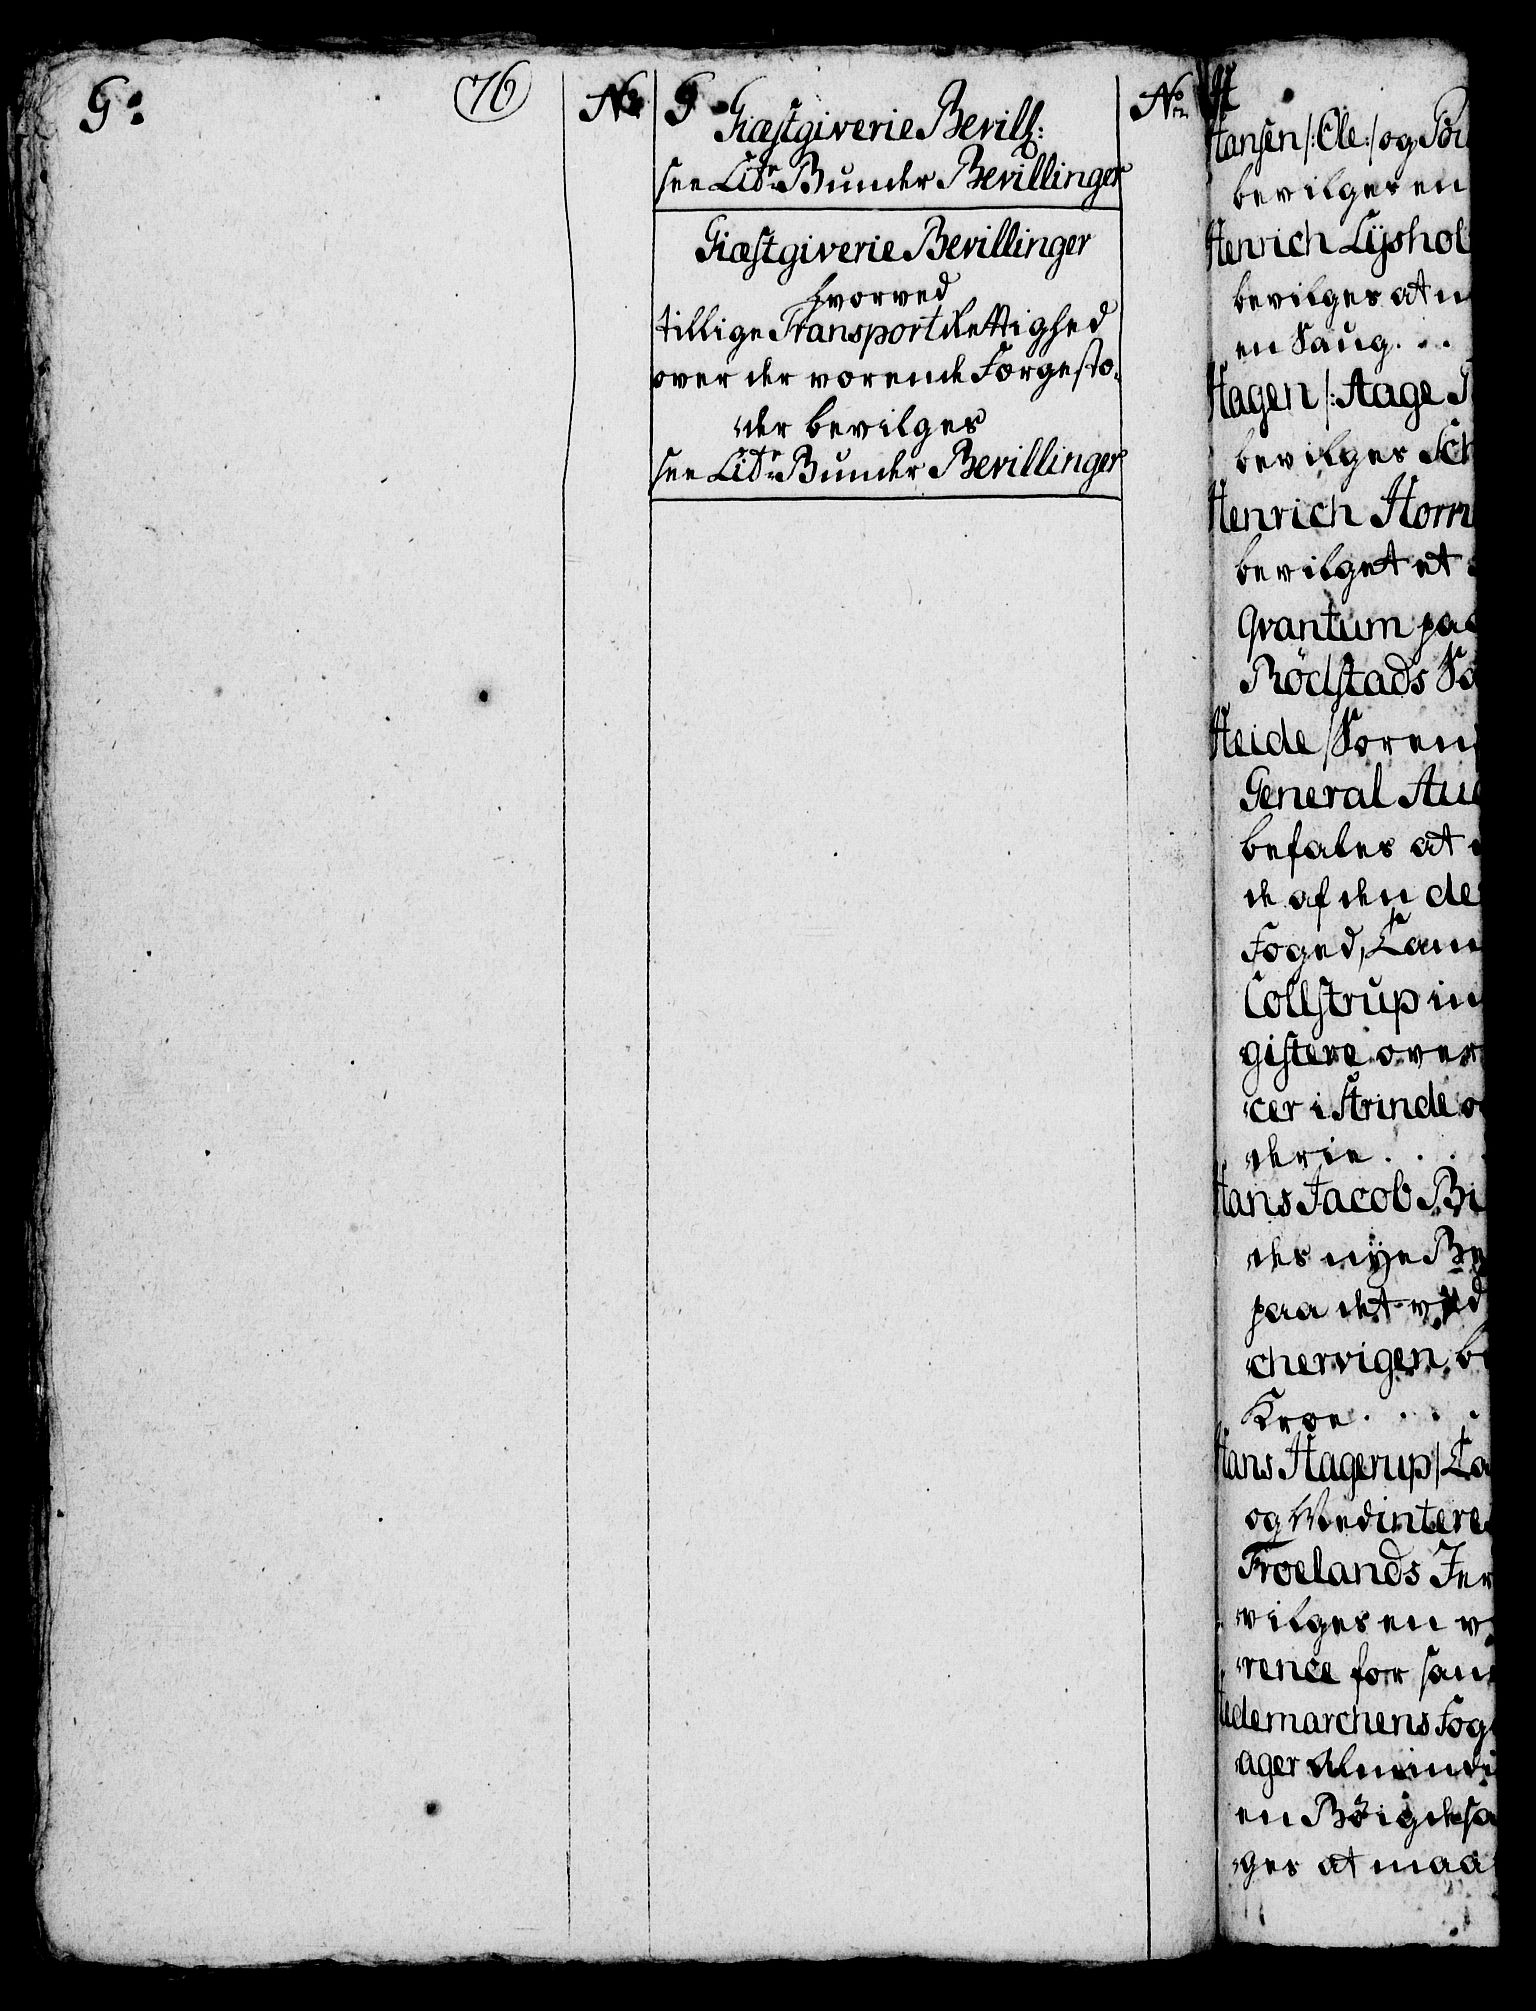 G:
76
No
G
Giæstgiverie Bevill:
see Litr B under Bevillinger
Giæstgiverie Bevillinger
hvorved
tillige Transport Rettighed
over der værende Færgesto-
der bevilges
see Litr B under Bevillinger
No
H
Hansen /: Ole :/ og
bevilges en
Henrich Lÿshol
bevilges at
en Saug . . .
Hagen /: Aage
bevilges
Henrich
bevilget et
Qvantum paa
Rödstads
Heide / Soren
General
befales at
de af den
Foged,
Collstrup
gistere over
cer i Strinde
derie . . .
Hans Jacob
des nÿe
paa det
chervigen,
Kroe . . . .
Hans Hagerup /
og
Froelands
vilges en
rence for
Hedemarchens
ager
en
ges at maa